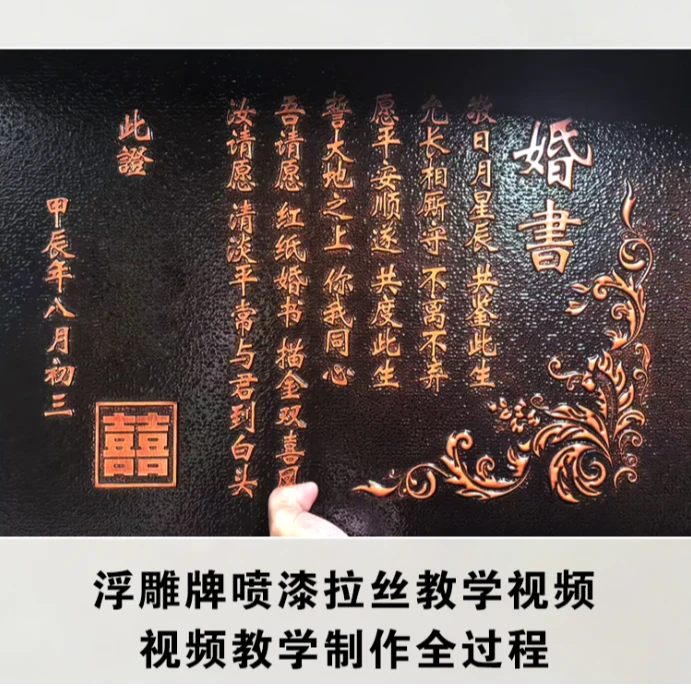 婚書
敬日月星辰 共鉴此生
允长相厮守 不离不弃
愿平安顺遂 共度此生
誓大地之上 你我同心
吾请愿 红纸婚书 描金双喜凤
汝请愿 清淡平常与君到白头
此證
甲辰年八月初三
囍
浮雕牌喷漆拉丝教学视频
视频教学制作全过程